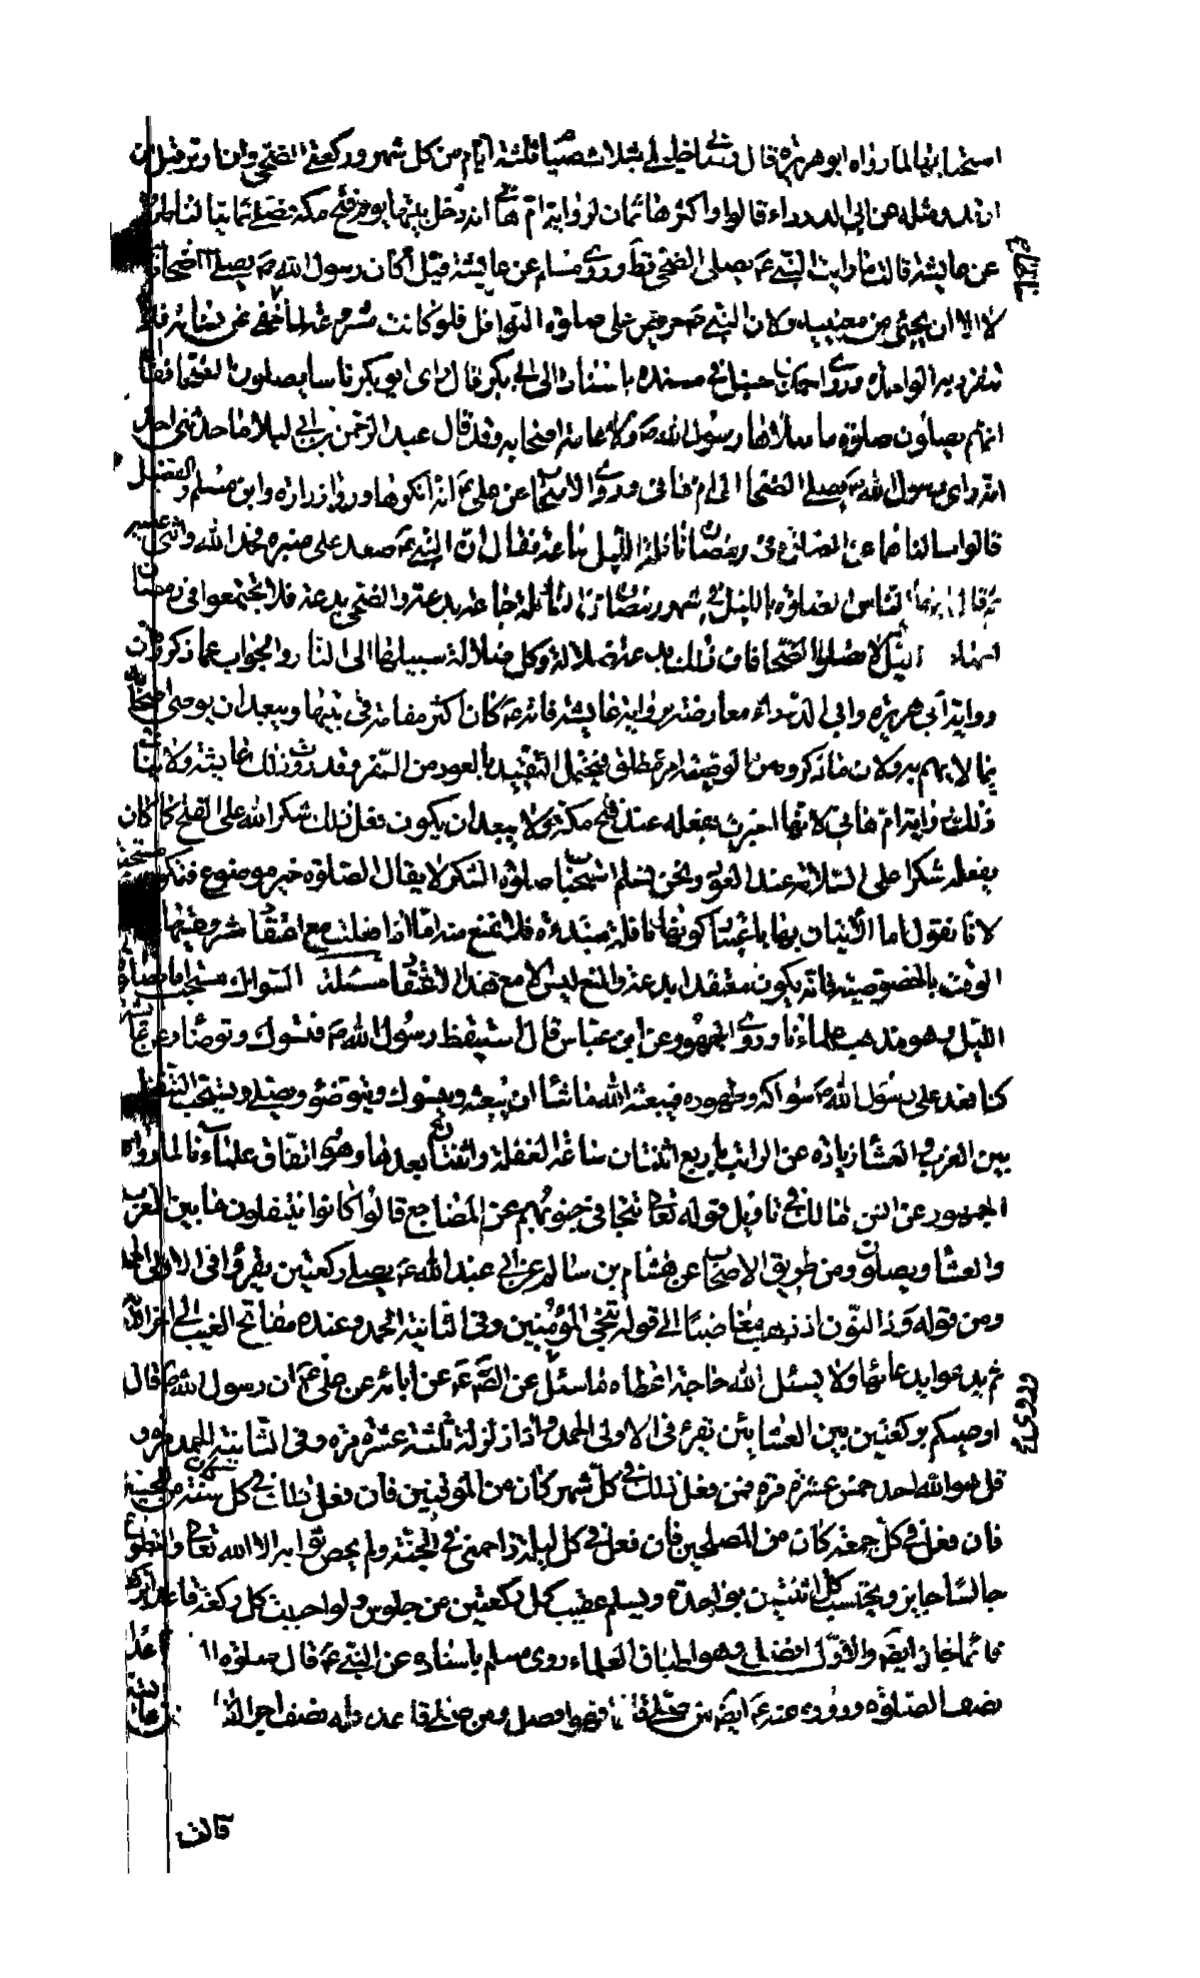 استحبابها لما رواه ابو هريرة قال وصاني خليلي بثلاث صيام ثلثة ايام من كل شهر وركعتي الضحى وان اوتر قبل ان
ارقد ومثله عن ابي الدرداء قالوا واكثرها ثمان لرواية ام هاني انه دخل بيتها يوم فتح مكة فصلى ثمانيا لنا ما روى
عن عايشة قالت ما رايت النبي ع يصلي الضحى قط وروى مسلم عن عايشة قيل اكان رسول الله ص يصلي الضحى قالت
لا الا ان يجيئ من مغيبه ولان النبي ص حريص على صلوة النوافل فلو كانت مشروعة لما خفي عن نسائه فلا
تنفرد به الواحدة وروى احمد بن حنبل في مسنده باسناد الى ابي بكر قال راى ابو بكر ناسا يصلون الضحى فقال
انهم يصلون صلوة ما صلاها رسول الله ص ولا عامة اصحابه وقد قال عبد الرحمن بن ابي ليلا ما حدثني احد
انه راى رسول الله ص يصلي الضحى الا ام هاني وروى الاصحاب عن علي ع انه انكرها وروى زرارة وابن مسلم والفضيل
قالوا سالناهما عن الصلوة في رمضان نافلة الليل جماعة فقال ان النبي ع صعد على منبره فحمد الله واثنى عليه
ثم قال ايها الناس الصلوة بالليل في شهر رمضان النافلة جماعة بدعة والضحى بدعة فلا تجتمعوا في رمضان
الليل لا تصلوا الضحى فان ذلك بدعة ضلالة وكل ضلالة سبيلها الى النار والجواب عما ذكروه ان
رواية ابي هريرة وابي الدرداء معارضة برواية عايشة فانه ع كان اكثر مقامه في بيتها ويبعد ان يوصي اصحابه
بما لا يهم به ولان ما ذكروه من الوصية امر مطلق فيحتمل التقييد بالعود من السفر وقد روت ذلك عايشة ولا ينافي
ذلك رواية ام هاني لانها اخبرت بفعله عند فتح مكة ولا يبعد ان يكون فعل ذلك شكر الله على الفتح كما كان
يفعله شكرا على السلامة عند العود ونحن نسلم استحباب صلوة الشكر لا يقال الصلوة خير موضوع فتكون مستحبة
لانا نقول اما الاتيان بها باعتبار كونها نافلة مبتدءة فلا نمنع منه اما اذا فعلت مع اعتقاد مشروعيتها
الوقت بالخصوصية فانه يكون معتقدا لبدعة والمنع ليس الا مع هذا الاعتقاد مسئلة السواك مستحب امام صلوة
الليل وهو مذهب علمائنا وروى الجمهور عن ابن عباس قال استيقظ رسول الله ص فتسوك وتوضأ وعن عايشة
كنا نعد على رسول الله ص سواكه وطهوره فيبعثه الله ما شا ان يبعثه ويتسوك ويتوضئ ويصلي ويستحب التنفل
بين المغرب والعشا زيادة عن الراتب باربع اثنتان ساعة الغفلة واثنتان بعدها وهو اتفاق علمائنا لما رواه
الجمهور عن انس بن مالك في تاويل قوله تعالى تتجافى جنوبهم عن المضاجع قالوا كانوا يتنفلون ما بين المغرب
والعشا ويصلون ومن طريق الاصحاب عن هشام بن سالم عن ابي عبد الله ع يصلي ركعتين يقرؤا في الاولى الحمد
ومن قوله وذا النون اذ ذهب مغاضبا الى قوله ننجي المؤمنين وفي الثانية الحمد وعنده مفاتح الغيب الى اخر الاية
ثم يدعوا يدعائها ولا يسئل الله حاجة الا اعطاه ما سئل عن الص ع عن ابائه عن علي ع ان رسول الله ص قال
اوصيكم بركعتين بين العشائين تقرء في الاولى الحمد واذا زلزلة ثلثة عشرة مرة وفي الثانية الحمد مرة و
قل هو الله احد خمس عشرة مرة فمن فعل ذلك في كل شهر كان من الموقنين فان فعل ذلك في كل سنة من المحسنين
فان فعل في كل جمعة كان من المصلحين فان فعل في كل ليلة زاحمني في الجنة ولم يحص ثوابه الا الله تعالى والتطوع
جالسا جايز ويحتسب كل اثنتين بواحدة ويسلم عقيب كل ركعتين من جلوس ولو احتسب كل ركعة قاعدا بركعة
قائما جاز ايضا والاول افضل وهو اطباق العلماء روى مسلم باسناده عن النبي ع قال صلوة القاعد
نصف الصلوة ورووه عنه ع ايضا من صلى قائما فهو افضل ومن صلى قاعدا وله نصف اجر القائم عايشة
قالت